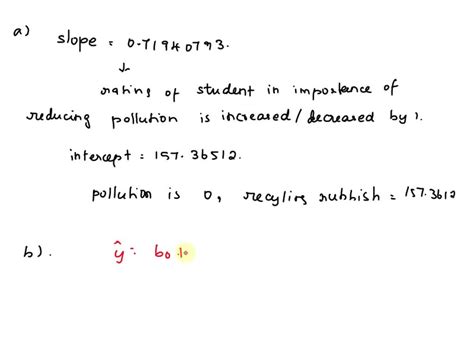 a) slope = 0.71940793.
↓
rating of student in importance of
reducing pollution is increased/decreased by 1.
intercept = 157.36512.
pollution is 0, recyling rubbish = 157.3612
b). ŷ = b0 +